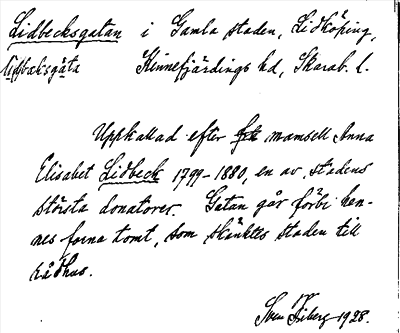 Lidbecksgatan i Gamla staden, Lidköping,
Kinnefjärdings hd, Skarab. l.
Uppkallad efter frk mamsell Anna
Elisabet Lidbeck 1799-1880, en av stadens
största donatorer. Gatan går förbi hen-
nes forna tomt, som skänktes staden till
rådhus.
Sven Friberg 1928.